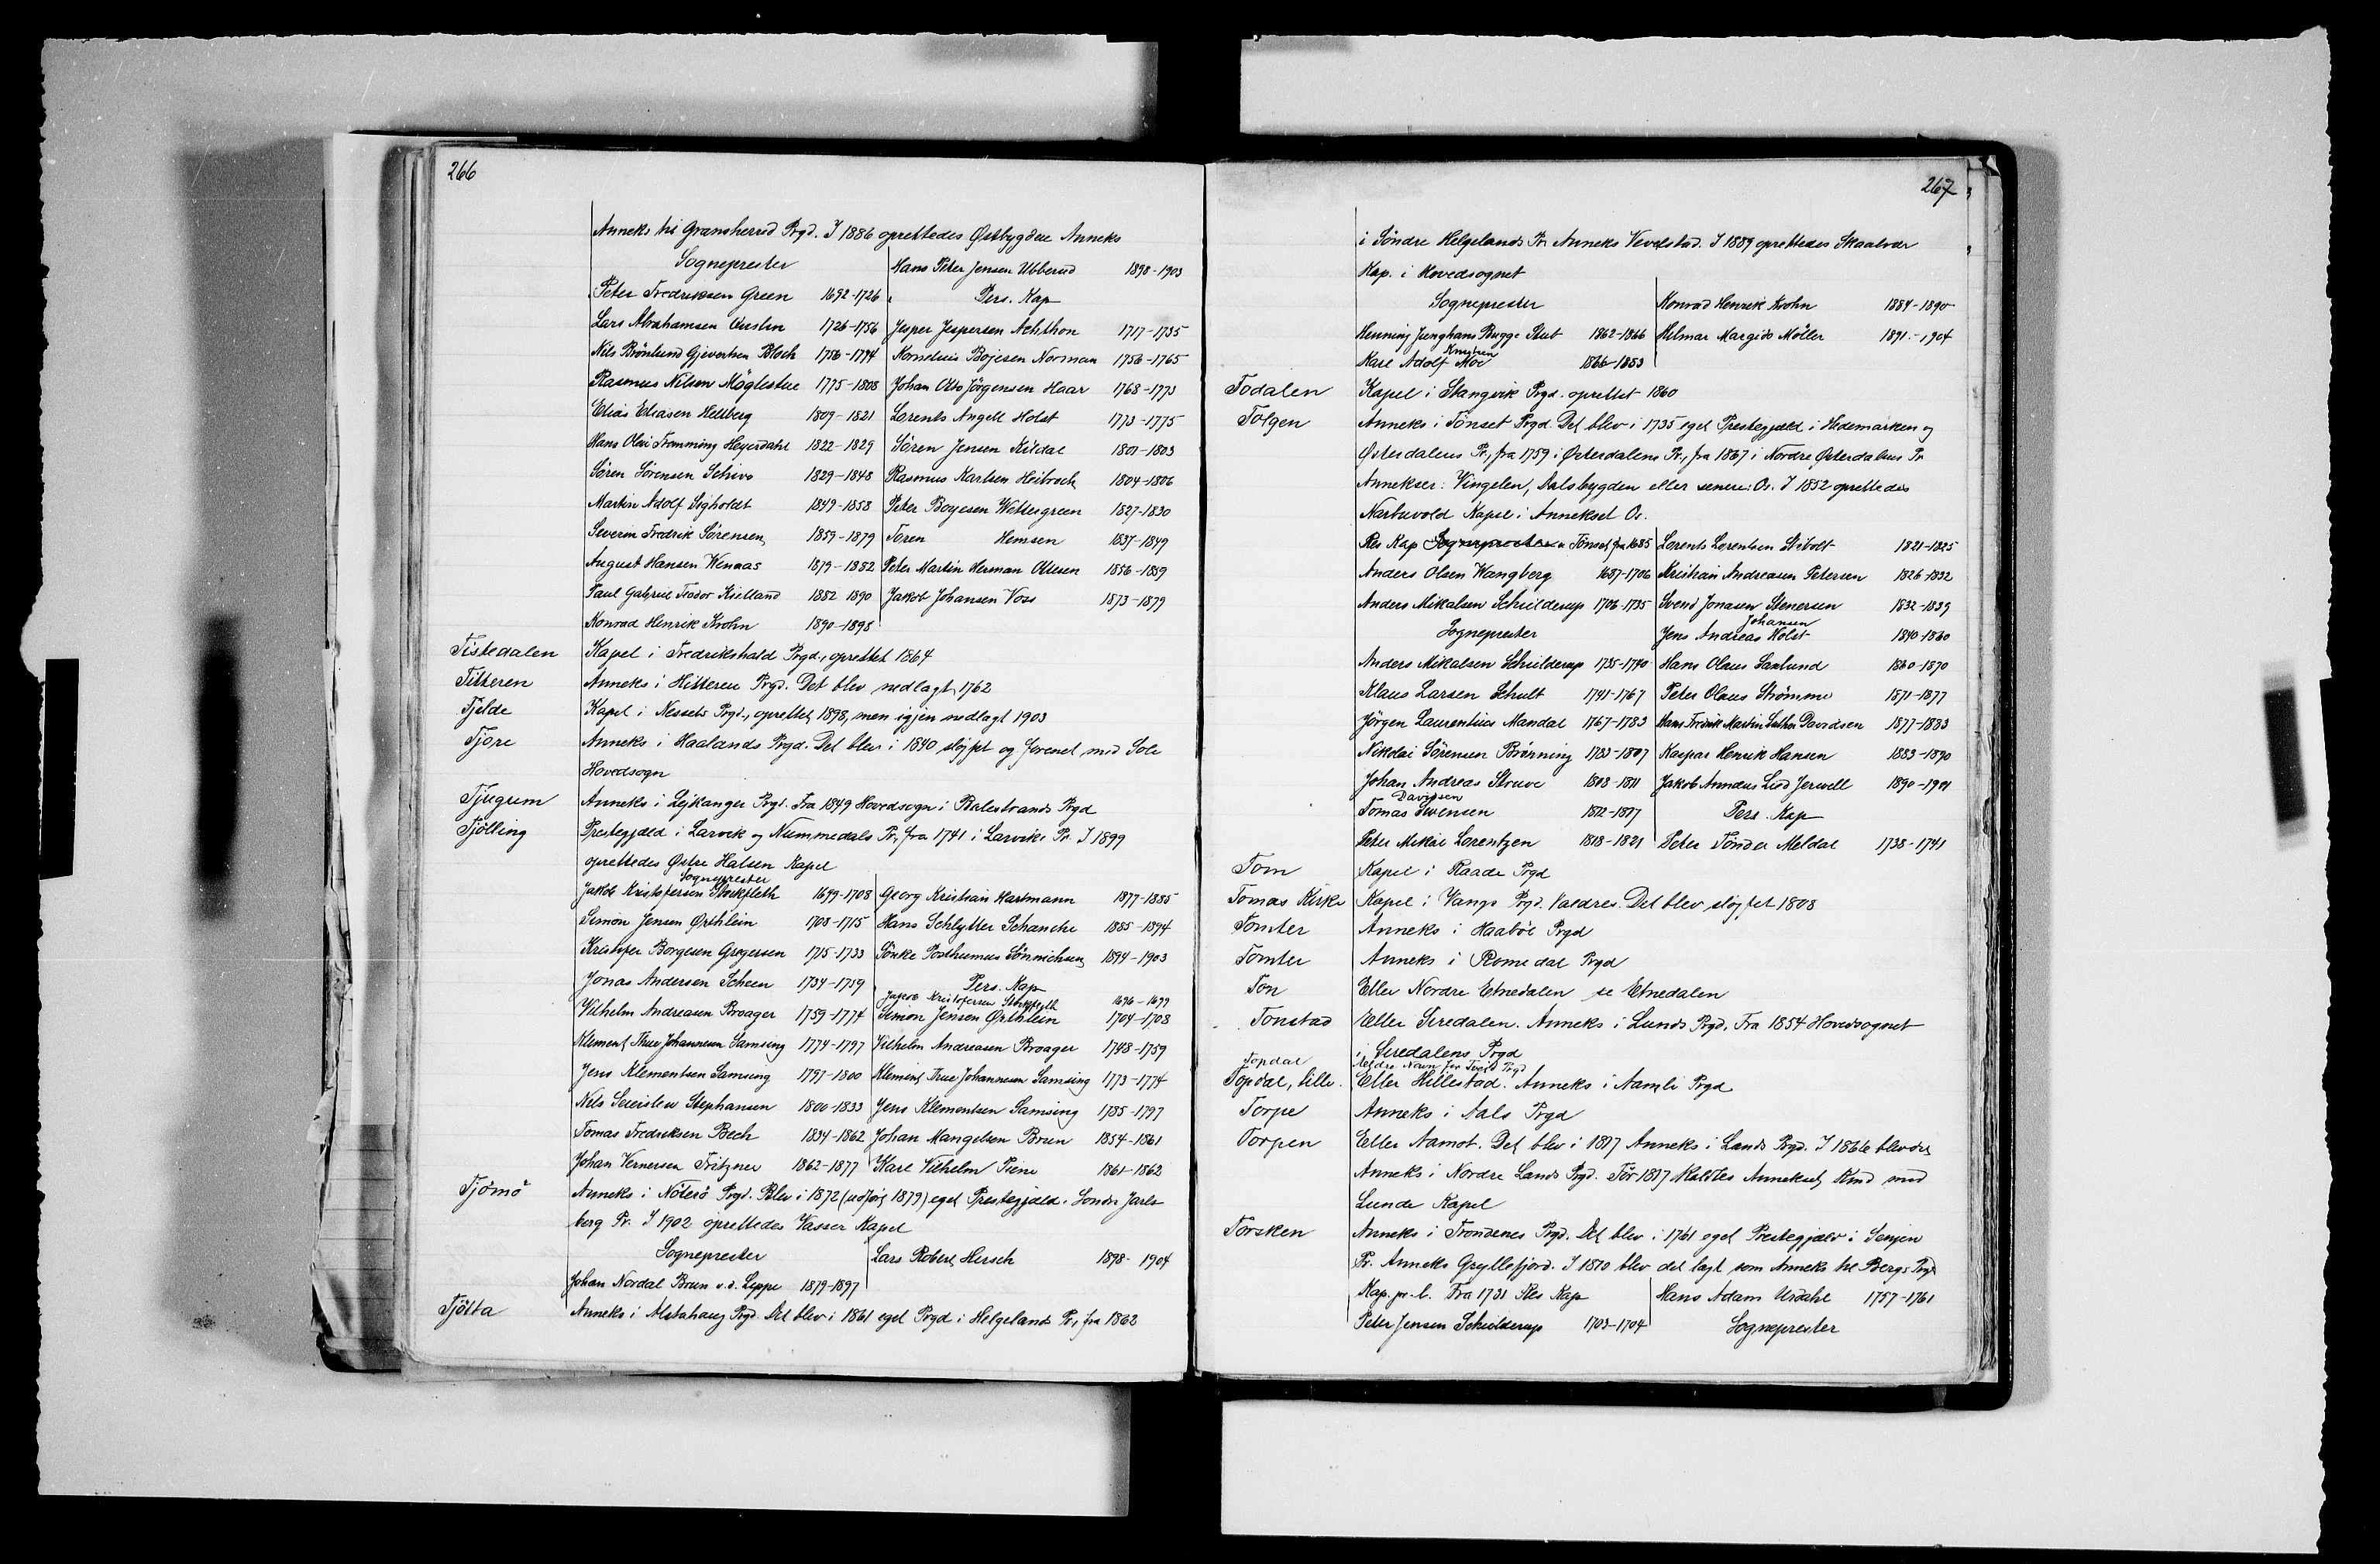 266
Anneks til Gransherred Prgd. I 1886 oprettedes Østbygdens Anneks
Sogneprester
Hans Peter Jensen Ubberud 1898-1903
Peter Fredriksen Green 1692-1726
Pers. Kap
Lars Abrahamsen 1726-1756
Jesper Jespersen Achthon 1717-1735
Nils Brönlund Gjevertsen Bloch 1756-1774
Kornelius Bojesen Norman 1756-1765
Rasmus Nilsen Møglestue 1775-1808
Johan Otto Jörgensen Haar 1768-1773
Elias Eliasen Hellberg 1809-1821
Lorents Angell Holst 1773-1775
Hans Olai Flemming Heyerdahl 1822-1829
Sören Jensen Kildal 1801-1803
Sören Sörensen Schive 1829-1848
Rasmus Karlsen Heibroch 1804-1806
Martin Adolf Sigholdt 1849-1858
Peter Boyesen Wettergreen 1827-1830
Severin Fredrik Sørensen 1859-1879
Toren Hemsen 1837-1849
August Hansen Wenaas 1879-1882
Peter Martin Herman Ottesen 1856-1859
Paul Gabriel Teodor Kielland 1882 1890
Jakob Johansen Voss 1873-1879
Konrad Henrik Krohn 1890-1898
Tistedalen Kapel i Fredrikshald Prgd., oprettet 1864
Titteren Anneks i Hitteren Prgd. Det blev nedlagt 1762
Tjelde Kapel i Nessets Prgd., oprettet 1898, men igjen nedlagt 1903
Tjore Anneks i Haalands Prgd. Det blev i 1840 sløjfet og forenet med Sole
Hovedsogn
Tjugum Anneks i Lejkanger Prgd. Fra 1849 Hovedsogn i Balestrands Prgd
Tjölling Prestegjæld i Larvik og Nummedals Pr, fra 1741 i Larviks Pr. I 1899
oprettedes Østre Halsen Kapel
Sogneprester
Jakob Kristofersen Stockfleth 1699-1708
Georg Kristian Hartmann 1877-1885
Simon Jensen Ørthlein 1708-1715
Hans Schlytter Schanche 1885-1894
Kristofer Borgesen Gregersen 1715-1733
Sönke Posthumus Sönnichsen 1894-1903
Jonas Andersen Scheen 1734-1759
Pers. Kap
Jakob Kristofersen Stockfleth 1696-1699
Vilhelm Andreasen Broager 1759-1774
Simon Jensen Ørthlein 1704-1708
Klement True Johannesen Samsing 1774-1797
Vilhelm Andreasen Broager 1748-1759
Jens Klementsen Samsing 1797-1800
Klement True Johannesen Samsing 1773-1774
Nils Seierslew Stephansen 1800-1833
Jens Klementsen Samsing 1785-1797
Tomas Fredriksen Bech 1834-1862
Johan Mangelsen Brun 1854-1861
Johan Vernersen Fritzner 1862-1877
Karl Vilhelm Piene 1861-1862
Tjömö Anneks i Nöterö Prgd. Blev i 1872 (udfört 1879) eget Prestegjæld i Søndr Jarls
berg Pr. I 1902 oprettedes Vasser Kapel
Sogneprester
Lars Robert Hirsch 1898-1904
Johan Nordal Brun v.d. Lippe 1879-1897
Tjötta Anneks i Alstahaug Prgd. Det blev i 1861 eget Prgd i Helgelands Pr, fra 1862
267
i Söndre Helgelands Pr Anneks Vevelstad. I 1889 oprettedes Skaalvær
Kap. i Hovedsognet
Sogneprester
Konrad Henrik Krohn 1884-1890
Henning Junghans Bugge Stub 1862-1866
Hilmar Margido Möller 1891-1904
Knudsen
Karl Adolf Moe 1866-1883
Todalen Kapel i Stangvik Prgd. oprettet 1860
Tolgen Anneks i Tönset Prgd. Det blev i 1735 eget Prestegjæld i Hedemarken og
Østerdalens Pr, fra 1759 i Østerdalens Pr, fra 1867 i Nordre Østerdalens Pr
Annekser: Vingelen, Dalsbygden eller senere: Os. I 1852 oprettedes
Narbuvold Kapel i Annekset Os.
Res Kap Sogneprester a Tönset fra 1685
Lorents Lorentsen Stibolt 1821-1825
Anders Olsen Wangberg 1687-1706
Kristian Andreasen Petersen 1826-1832
Anders Mikalsen Schielderup 1706-1735
Svend Jonasen Stenersen 1832-1839
Sogneprester
Johansen
Jens Andreas Holst 1840-1860
Anders Mikalsen Schielderup 1735-1740
Hans Olaus Saxlund 1860-1870
Klaus Larsen Schult 1741-1767
Peter Olaus Strömme 1871-1877
Jörgen Laurentius Mandal 1767-1783
Hans Fredrik Martin Luther Davidsen 1877-1883
Nikolai Sörensen Brönning 1783-1807
Kaspar Henrik Hansen 1883-1890
Johan Andreas Struve 1808-1811
Jakob Anndæus Lied Jervell 1890-1901
Davidsen
Tomas Swensen 1812-1817
Pers. Kap
Peter Mikal Lorentzen 1818-1821
Peter Tönder Meldal 1738-1741
Tom Kapel i Raade Prgd
Tomas Kirke Kapel i Vangs Prgd. Valdres. Det blev sløjfet 1808
Tomter Anneks i Haaböl Prgd
Tomter Anneks i Romedal Prgd
Ton Eller Nordre Etnedalen se Etnedalen
Tonstad Eller Siredalen. Anneks i Lunds Prgd. Fra 1854 Hovedsognet
i Siredalens Prgd
Topdal Ældre Navn for Tveit Prgd
Topdal, lille. Eller Hillestad. Anneks i Aamli Prgd
Torpe Anneks i Aals Prgd
Torpen Eller Aamot. Det blev i 1817 Anneks i Lands Prgd. I 1866 blev det
Anneks i Nordre Lands Prgd. Før 1817 kaldtes Annekset Kind med
Lunde Kapel
Torsken Anneks i Trondenes Prgd. Det blev i 1761 eget Prestegjæld i Senjen
Pr. Anneks Gryllefjord. I 1810 blev det lagt som Anneks til Bergs Prgd
Kap. pr. l. Fra 1731 Res Kap
Hans Adam Urdahl 1757-1761
Peter Jensen Schielderup 1703-1704
Sogneprester